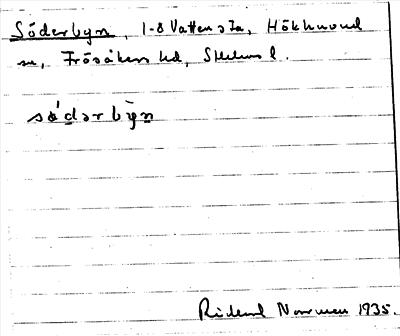 Söderbyn, 1-8 Vattensta, Hökhuvud
sn, Frösåkers hd, Sthlms l.
södərbỳn
Rickard Norrman 1935.